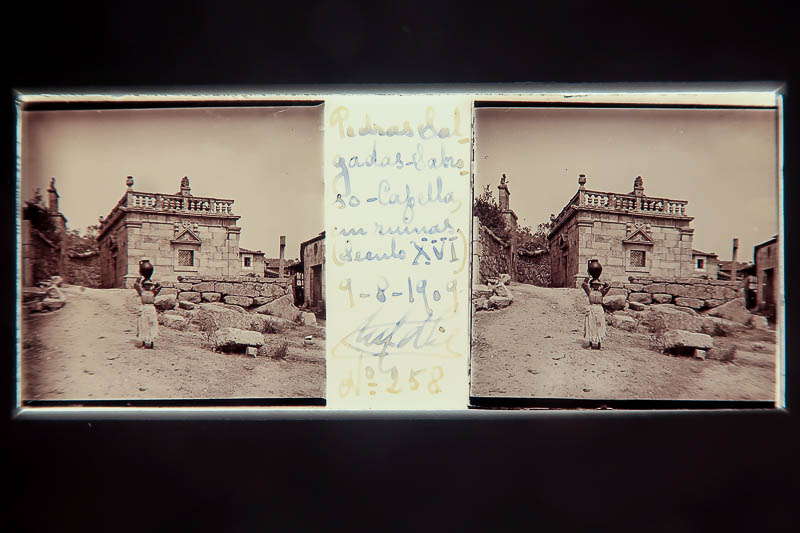 Pedras Sal-
gadas-Sabro-
so-Capella
in ruinas
(Seculo XVI)
9-8-1909
Nº 258